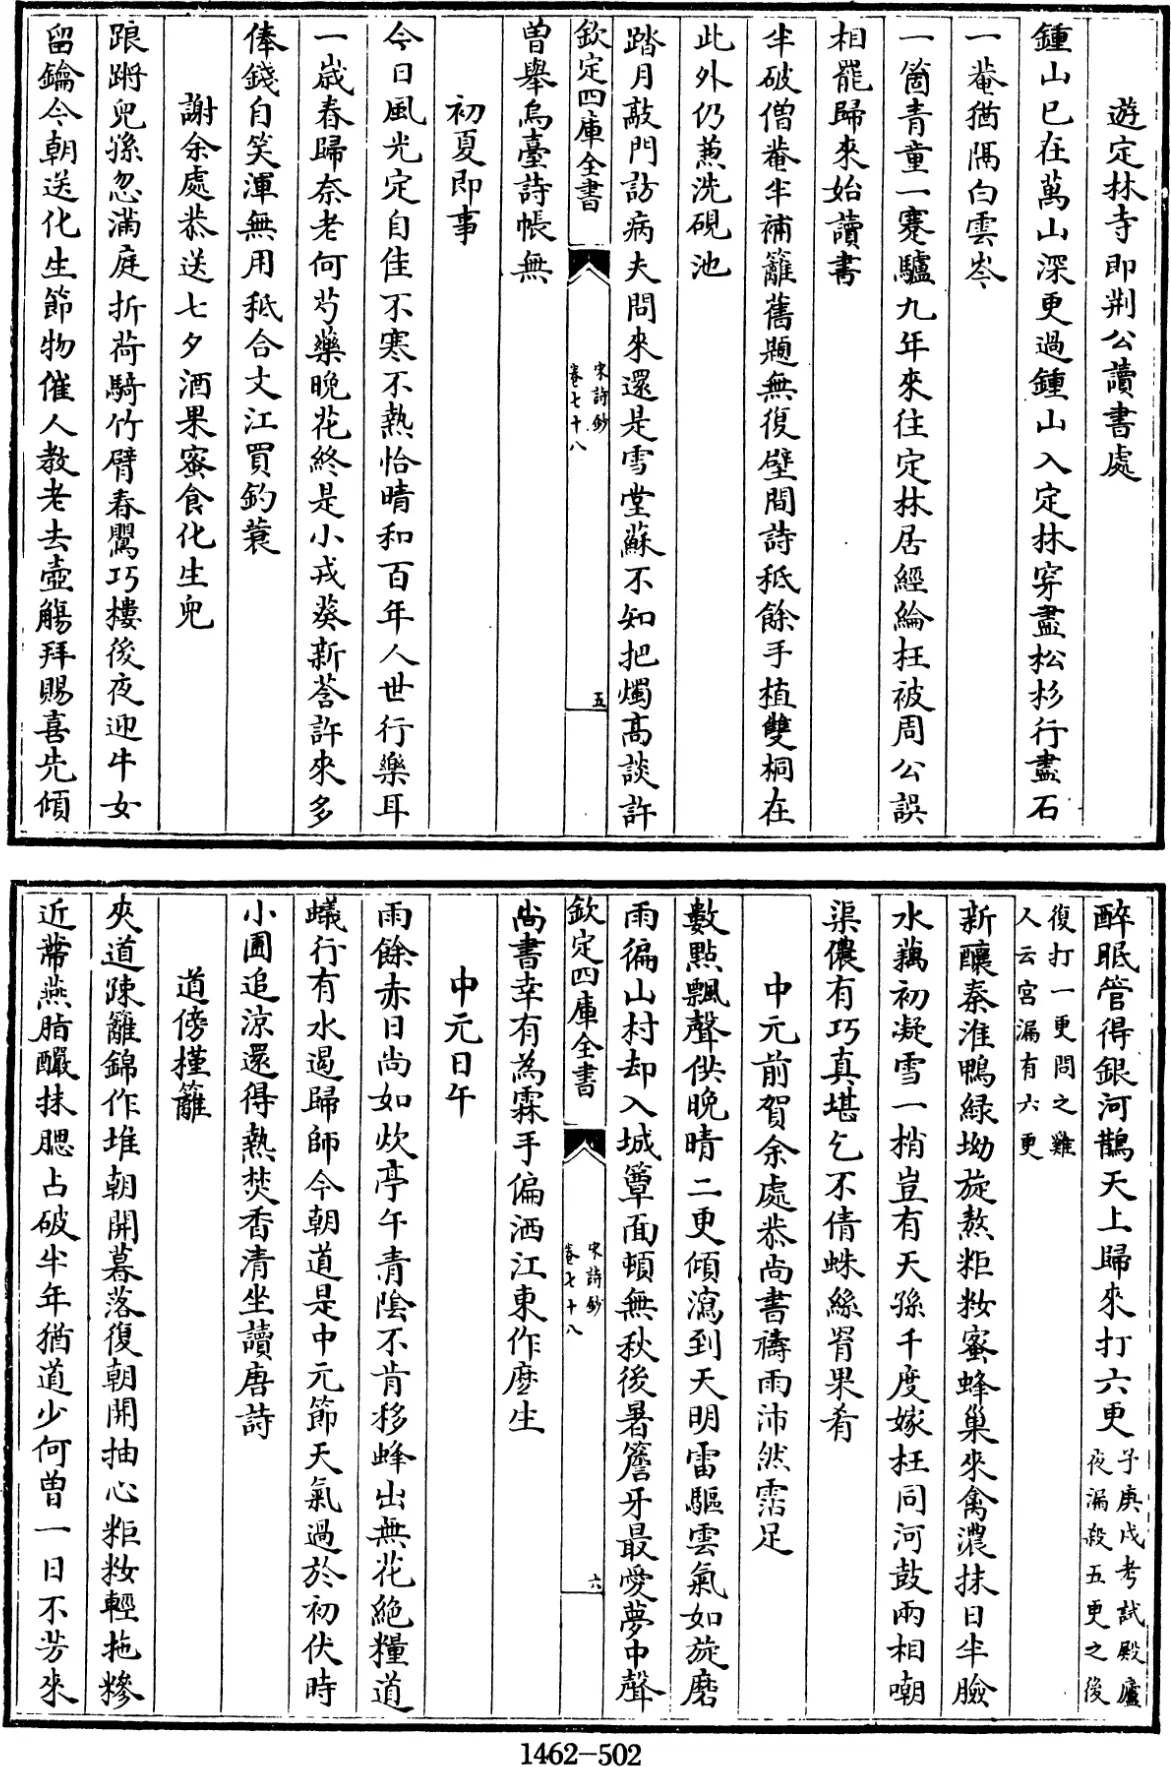 遊定林寺即荆公讀書處
鍾山已在萬山深更過鍾山入定林穿盡松杉行盡石
一菴猶隔白雲岑
一箇青童一蹇驢九年來往定林居經綸枉被周公誤
相罷歸來始讀書
半破僧菴半補籬舊題無復壁間詩秪餘手植雙桐在
此外仍兼洗硯池
踏月敲門訪病夫問來還是雪堂蘇不知把燭髙談許
欽定四庫全書
宋詩鈔
卷七十八
五
曽舉烏臺詩帳無
初夏即事
今日風光定自佳不寒不熱恰晴和百年人世行樂耳
一嵗春歸奈老何芍藥晚花終是小戎葵新荅許來多
俸錢自笑渾無用秪合文江買釣蓑
謝余處恭送七夕酒果蜜食化生兒
踉蹡兒孫忽滿庭折荷騎竹臂春鸎巧樓後夜迎牛女
留鑰今朝送化生節物催人教老去壺觴拜賜喜先傾
醉眠管得銀河鵲天上歸來打六更
予庚戌考試殿廬
夜漏殺五更之後
復打一更問之雞
人云宮漏有六更
新釀秦淮鴨緑坳旋熬粔籹蜜蜂巢來禽濃抹日半臉
水藕初凝雪一梢豈有天孫千度嫁枉同河鼓兩相嘲
渠儂有巧真堪乞不倩蛛絲罥果肴
中元前賀余處恭尚書禱雨沛然霑足
數點飄聲供晚晴二更傾瀉到天明雷驅雲氣如旋磨
雨徧山村却入城簟面頓無秋後暑簷牙最愛夢中聲
欽定四庫全書
宋詩鈔
卷七十八
六
尚書幸有為霖手偏洒江東作麽生
中元日午
雨餘赤日尚如炊亭午青陰不肯移蜂出無花絶糧道
蟻行有水遏歸師今朝道是中元節天氣過於初伏時
小圃追涼還得熱焚香清坐讀唐詩
道傍槿籬
夾道疎籬錦作堆朝開暮落復朝開抽心粔籹輕拖糝
近蔕燕脂釅抹腮占破半年猶道少何曽一日不芳來
1462-502